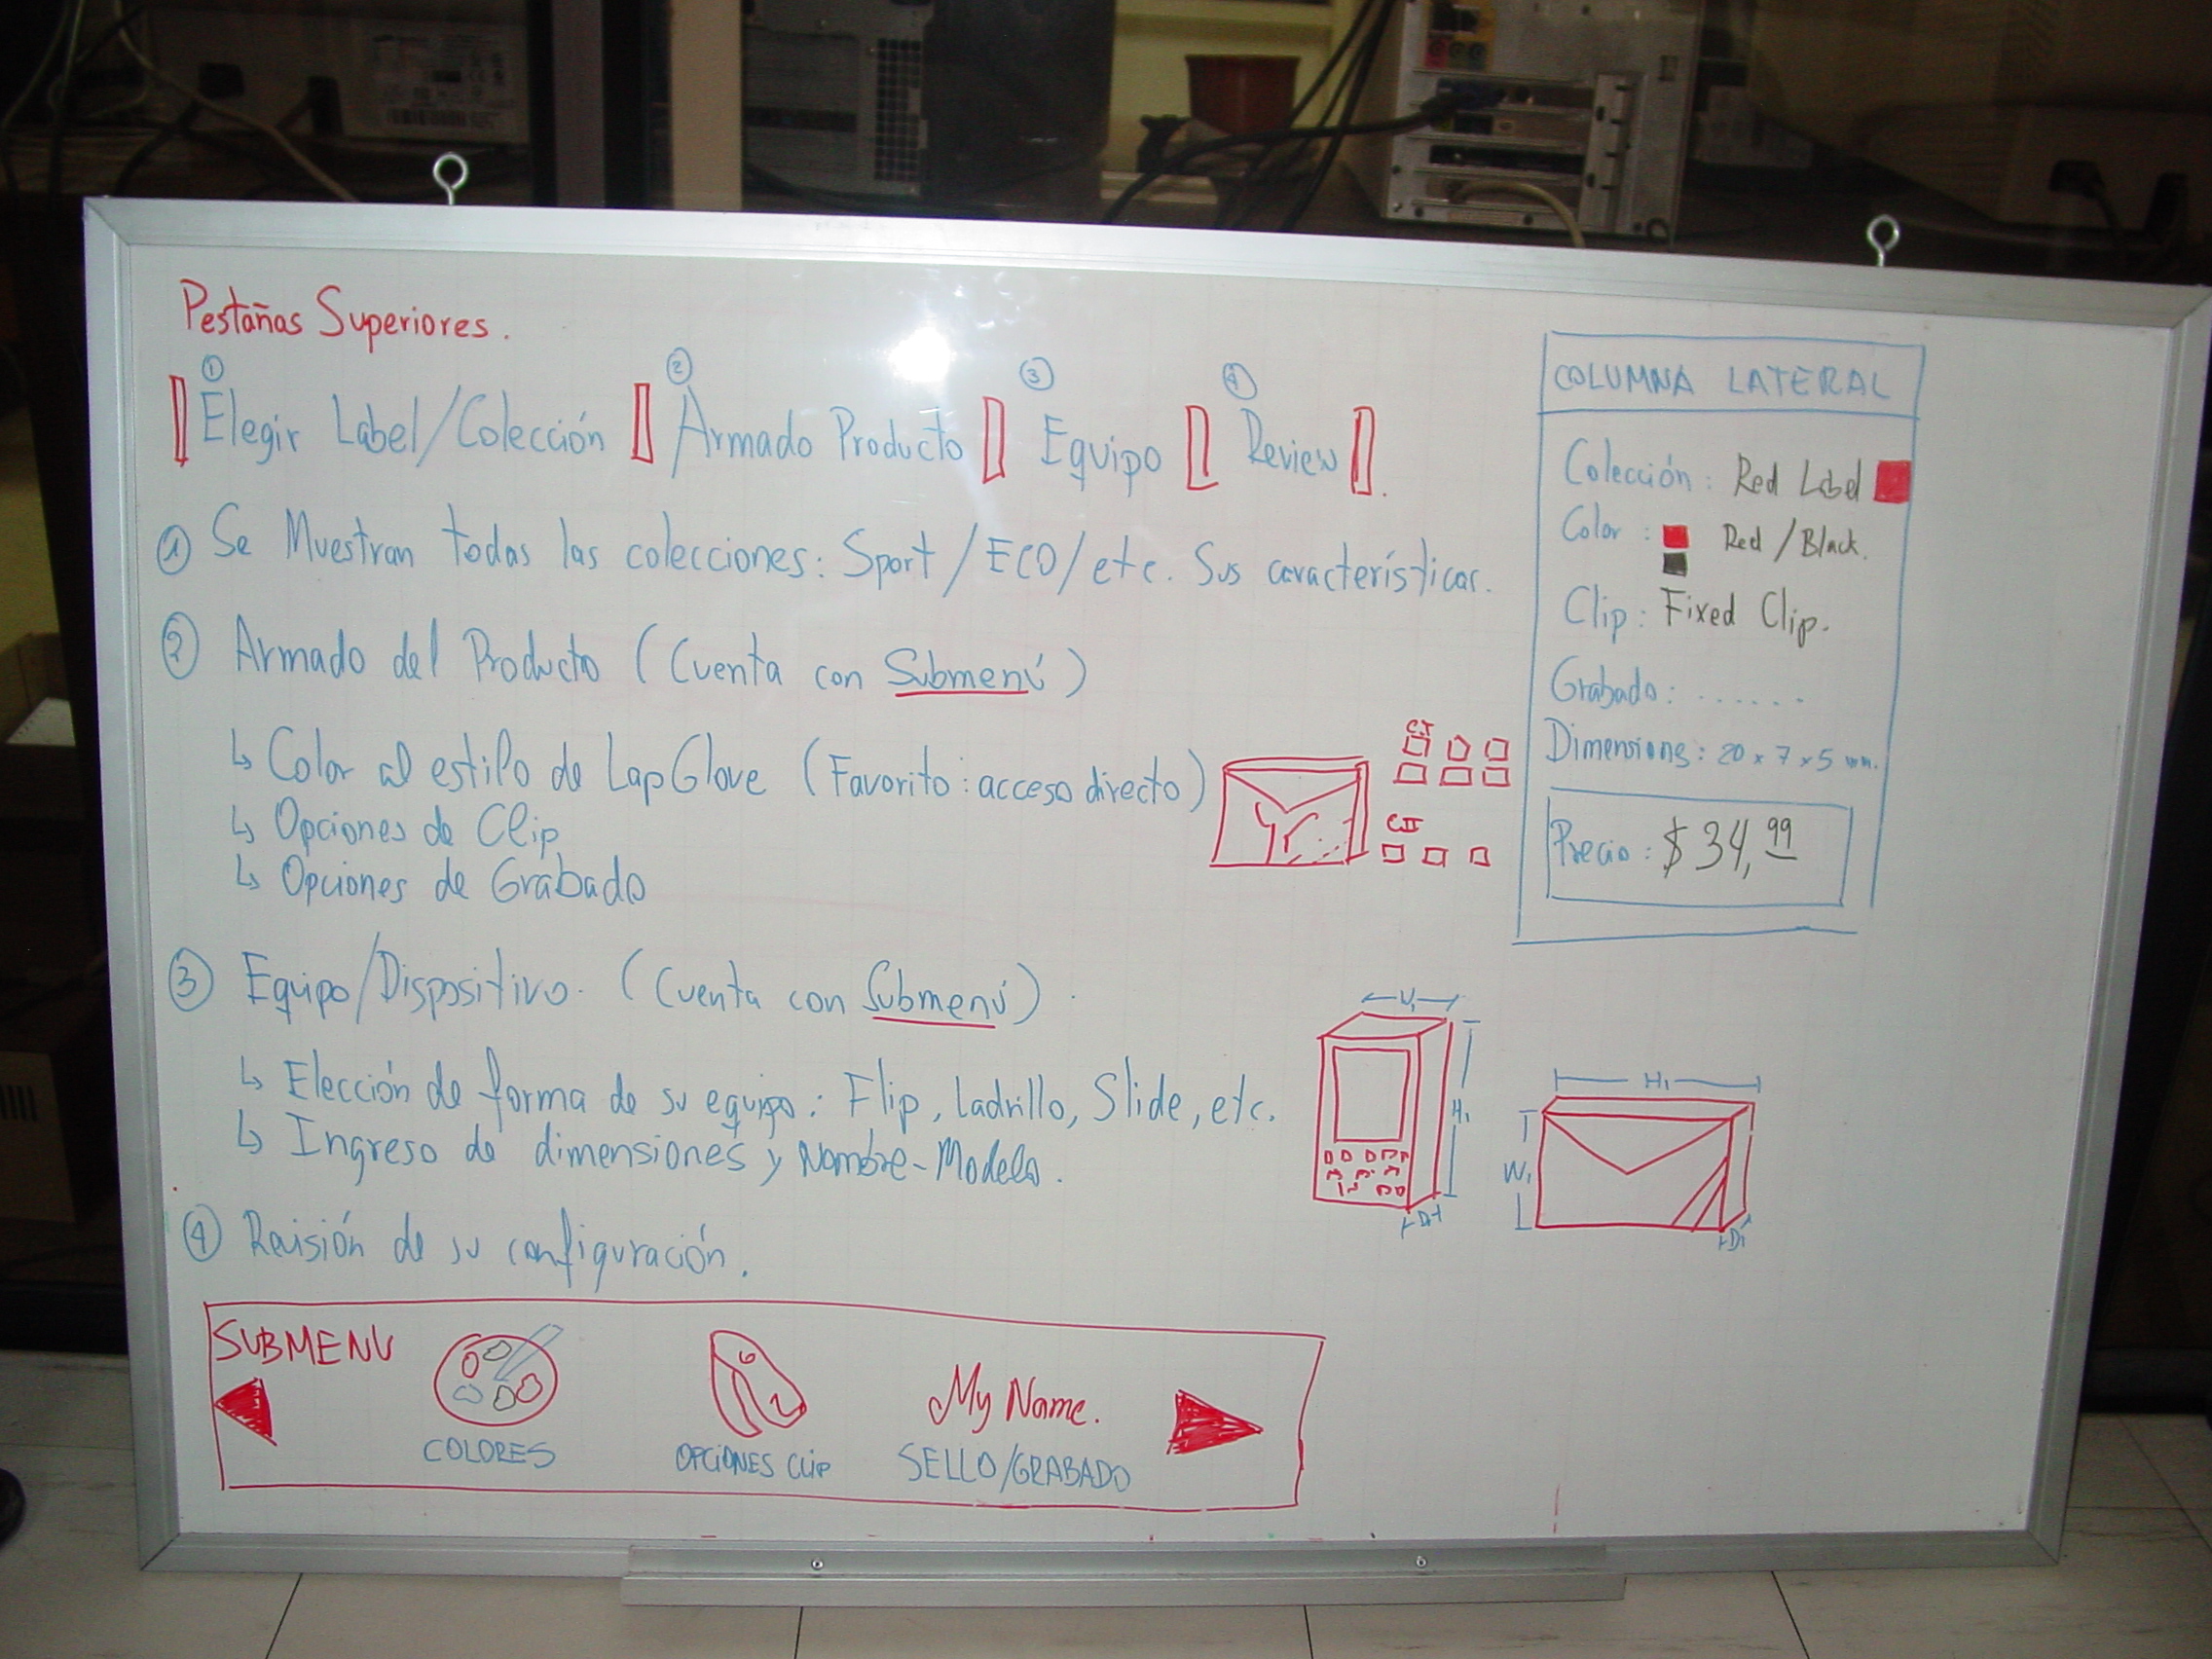 Pestañas Superiores.
① Elegir Label/Colección ② Armado Producto ③ Equipo ④ Review
① Se Muestran todas las colecciones: Sport/ECO/etc. Sus características.
② Armado del Producto (Cuenta con Submenú)
↳ Color al estilo de LapGlove (Favorito: acceso directo)
↳ Opciones de Clip
↳ Opciones de Grabado
CI
CII
③ Equipo/Dispositivo. (Cuenta con Submenú).
↳ Elección de forma de su equipo: Flip, Ladrillo, Slide, etc.
↳ Ingreso de dimensiones y Nombre-Modelo.
④ Revisión de su configuración.
COLUMNA LATERAL
Colección: Red Label
Color: Red/Black.
Clip: Fixed Clip.
Grabado: ......
Dimensions: 20 x 7 x 5 mm.
Precio: $34,99
W1
H1
D1
H1
W1
D1
SUBMENU
My Name.
COLORES OPCIONES CLIP SELLO/GRABADO